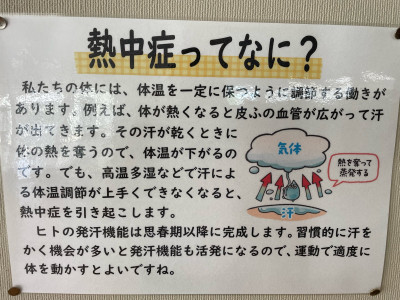 熱中症ってなに？
私たちの体には、体温を一定に保つように調節する働きが
あります。例えば、体が熱くなると皮ふの血管が広がって汗
が出てきます。その汗が乾くときに
体の熱を奪うので、体温が下がるの
です。でも、高温多湿などで汗によ
る体温調節が上手くできなくなると、
熱中症を引き起こします。
気体
熱を奪って
蒸発する
汗
ヒトの発汗機能は思春期以降に完成します。習慣的に汗を
かく機会が多いと発汗機能も活発になるので、運動で適度に
体を動かすとよいですね。